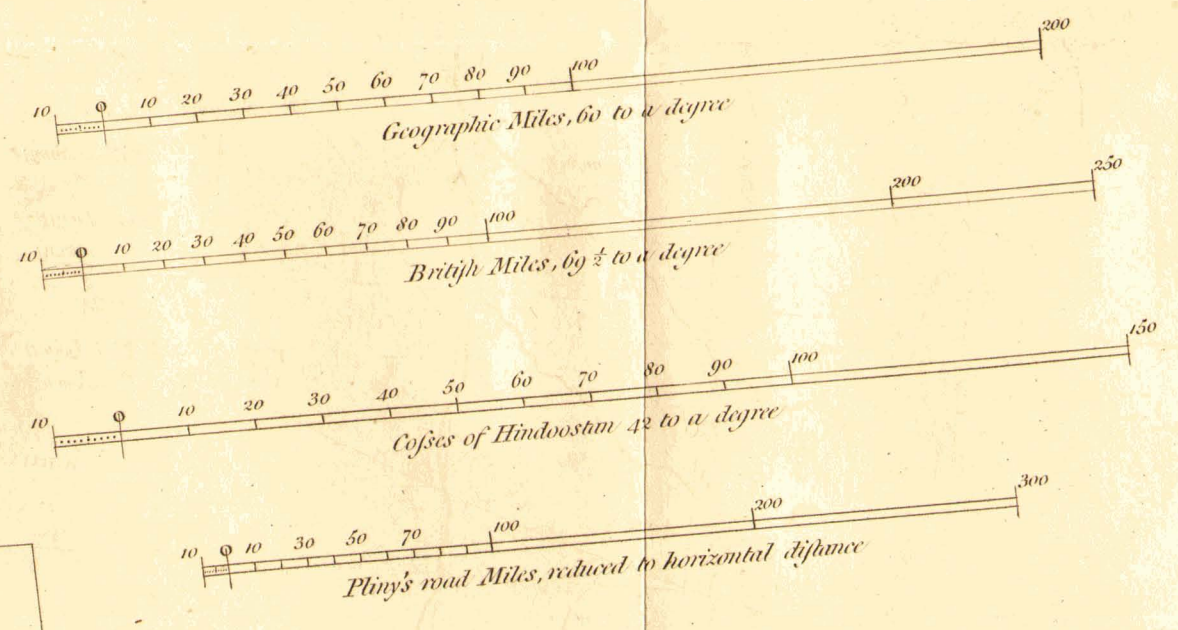 10 0 10 20 30 40 50 60 70 80 90 100 200
Geographic Miles, 60 to a degree
10 0 10 20 30 40 50 60 70 80 90 100 200 250
Britiſh Miles, 69 1/2 to a degree
10 0 10 20 30 40 50 60 70 80 90 100 150
Coſses of Hindoostan 42 to a degree
10 0 10 30 50 70 100 200 300
Pliny's road Miles, reduced to horizontal diſtance